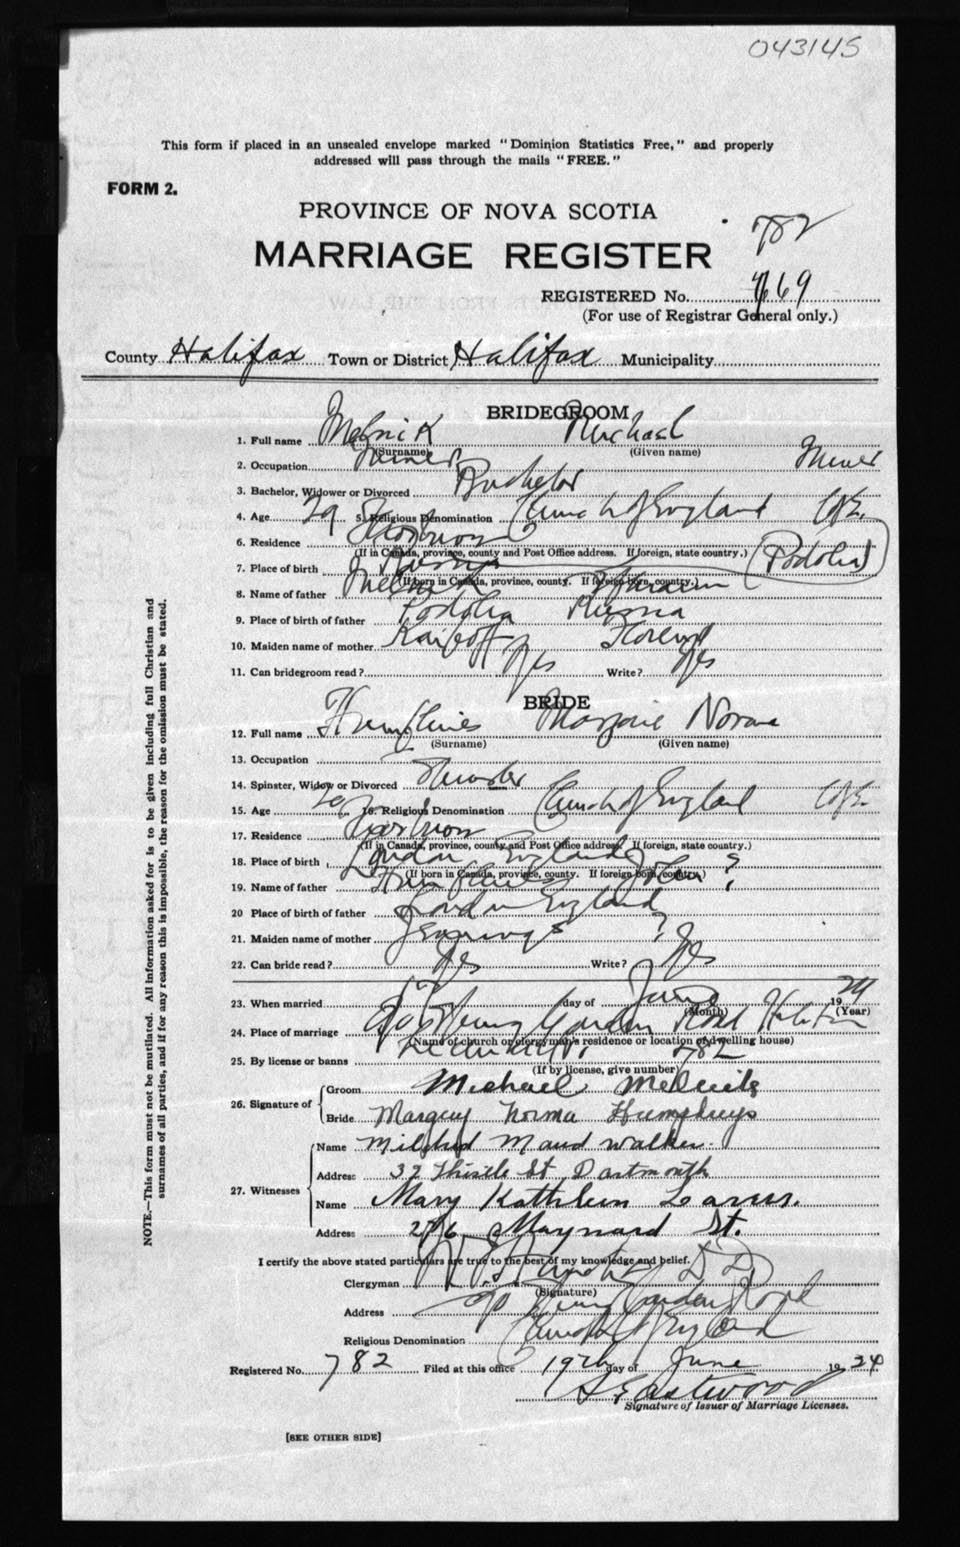 043145
This form if placed in an unsealed envelope marked "Dominion Statistics Free," and properly
addressed will pass through the mails "FREE."
FORM 2.
PROVINCE OF NOVA SCOTIA
782
MARRIAGE REGISTER
REGISTERED No. 69
(For use of Registrar General only.)
County Halifax Town or District Halifax Municipality
BRIDEGROOM
1. Full name Melnick Michael
(Surname) (Given name)
2. Occupation Miner Miner
3. Bachelor, Widower or Divorced Bachelor
4. Age 29 5. Religious Denomination Church of England C of E.
6. Residence
(If in Canada, province, county and Post Office address. If foreign, state country.)
7. Place of birth Russia (Podolia)
(If born in Canada, province, county. If foreign born, country.)
8. Name of father Melnick
9. Place of birth of father Podolia Russia
10. Maiden name of mother
11. Can bridegroom read? Yes Write? Yes
BRIDE
12. Full name Humphries Marjorie Norma
(Surname) (Given name)
13. Occupation
14. Spinster, Widow or Divorced Spinster
15. Age 20 16. Religious Denomination Church of England C of E.
17. Residence
(If in Canada, province, county and Post Office address. If foreign, state country.)
18. Place of birth London England
(If born in Canada, province, county. If foreign born, country.)
19. Name of father Humphries John ?
20 Place of birth of father London England
21. Maiden name of mother ?
22. Can bride read? Yes Write? Yes
23. When married day of June 1924
(Month) (Year)
24. Place of marriage Garden Road Halifax
(Name of church or clergyman's residence or location of dwelling house)
25. By license or banns 782
(If by license, give number)
26. Signature of
Groom Michael
Bride Norma Humphreys
27. Witnesses
Name Mildred Maud Walker.
Address 32 Thistle St Dartmouth
Name Mary Kathleen
Address Maynard St.
I certify the above stated particulars are true to the best of my knowledge and belief.
Clergyman D D
(Signature)
Address Garden Road
Religious Denomination Church of England
Registered No. 782 Filed at this office 19th day of June 1924
Eastwood
Signature of Issuer of Marriage Licenses.
[SEE OTHER SIDE]
NOTE.—This form must not be mutilated. All information asked for is to be given including full Christian and
surnames of all parties, and if for any reason this is impossible, the reason for the omission must be stated.